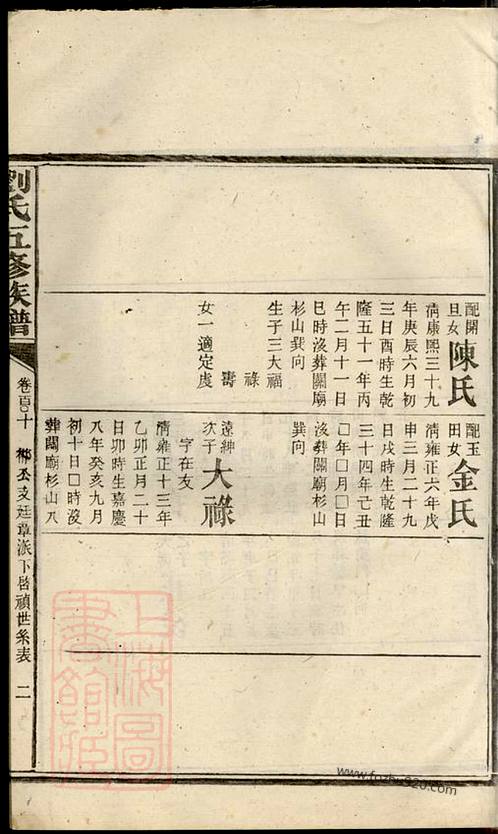 配開
旦女
陳氏
清康熙三十九
年庚辰六月初
三日酉時生乾
隆五十一年丙
午二月十一日
巳時沒葬關廟
杉山巽向
生子三大福
祿
壽
女一適定虔
配玉
田女
金氏
清雍正六年戊
申三月二十九
日戌時生乾隆
三十四年己丑
〇年〇月〇日
沒葬關廟杉山
巽向
遠紳
次子
大祿
字在友
清雍正十三年
乙卯正月二十
日卯時生嘉慶
八年癸亥九月
初十日〇時沒
葬關廟杉山八
劉氏五修族譜
卷百〇十
鄉公支廷章派下啓禎世系表
二
上海圖書館藏
www.fozhu920.com